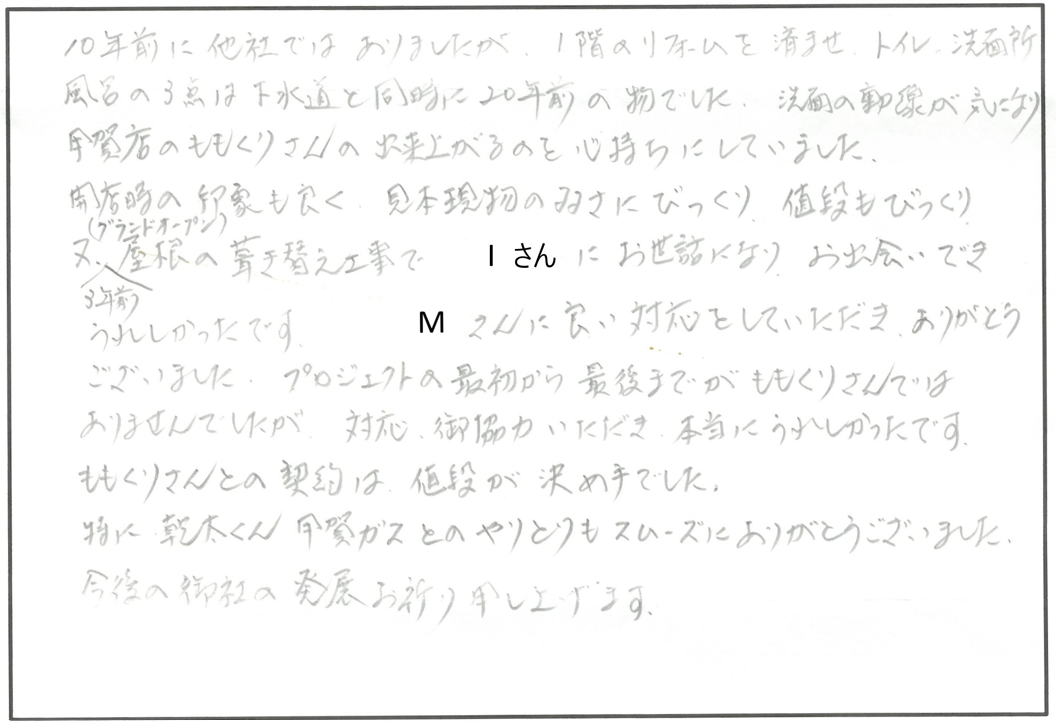 10年前に他社ではありましたが、1階のリフォームを済ませ、トイレ、洗面所
風呂の3点は下水道と同時に20年前の物でした。洗面の動線が気になり
甲賀店のももくりさんの出来上がるのを心待ちにしていました。
開店時の印象も良く、見本現物の多さにびっくり、値段もびっくり
(グランドオープン)
又、屋根の葺き替え工事で Iさん にお世話になり、お出会いでき
3年前
うれしかったです。 M さんに良い対応をしていただき、ありがとう
ございました。プロジェクトの最初から最後までがももくりさんでは
ありませんでしたが、対応、御協力いただき、本当にうれしかったです。
ももくりさんとの契約は、値段が決め手でした。
特に乾太くん 甲賀ガスとのやりとりもスムーズにありがとうございました。
今後の御社の発展お祈り申し上げます。